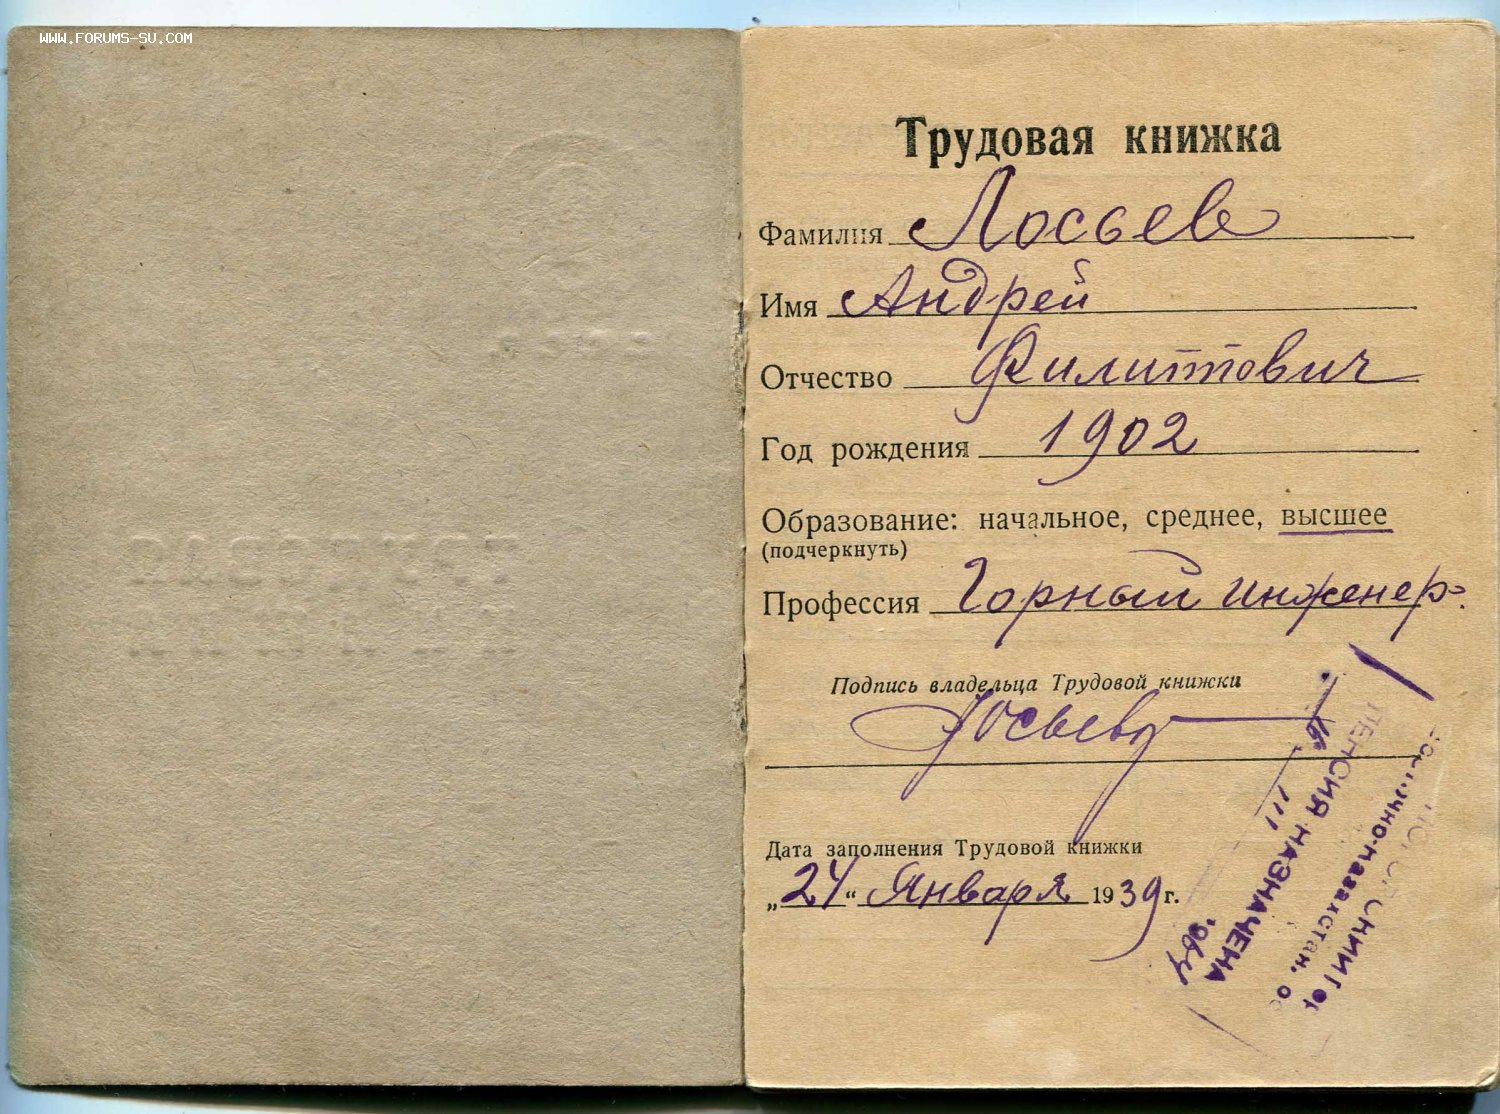 WWW.FORUMS-SU.COM
Трудовая книжка
Фамилия Лосьев
Имя Андрей
Отчество Филиппович
Год рождения 1902
Образование: начальное, среднее, высшее
(подчеркнуть)
Профессия Горный инженер.
Подпись владельца Трудовой книжки
Лосьев
Дата заполнения Трудовой книжки
„24“ Января 1939 г.
ПЕНСИЯ НАЗНАЧЕНА
16 III 1964